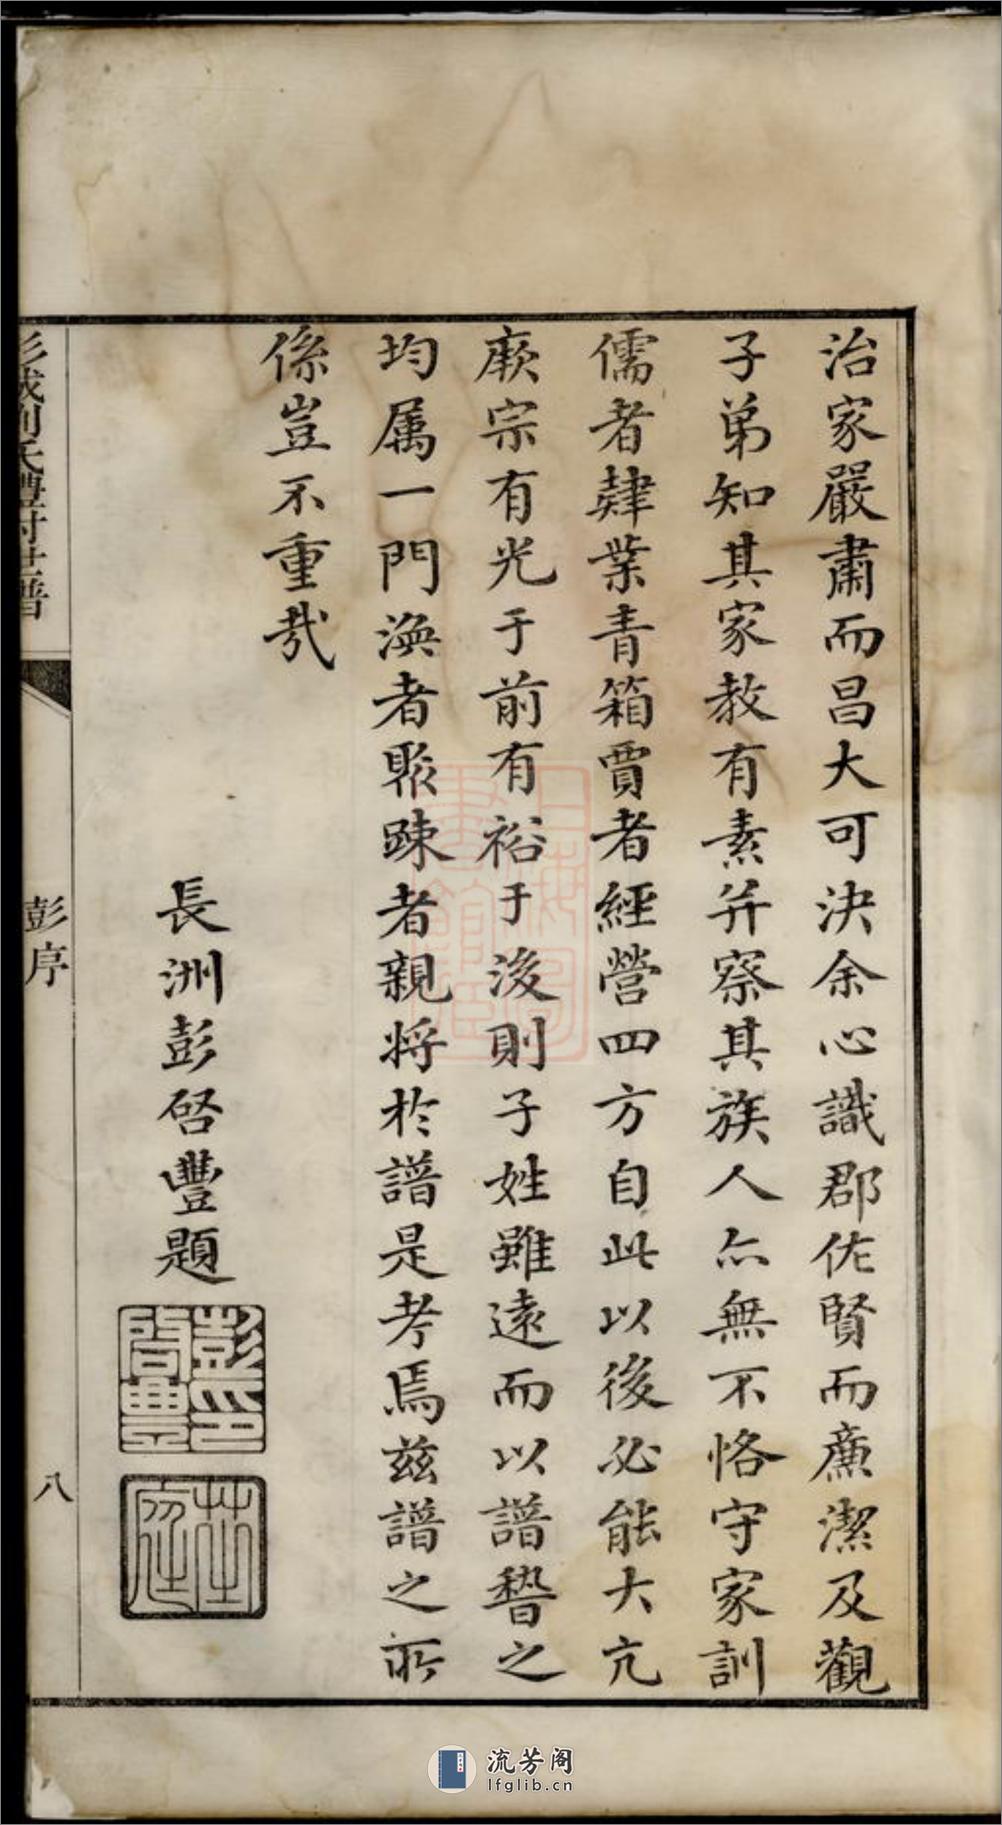 治家嚴肅而昌大可決余心識郡佐賢而廉潔及觀
子弟知其家教有素并察其族人亦無不恪守家訓
儒者肄業青箱賈者經營四方自此以後必能大亢
厥宗有光于前有裕于後則子姓雖遠而以譜稽之
均属一門渙者聚踈者親将於譜是考焉兹譜之所
係豈不重哉
長洲彭啓豐題
彭印啓豐
芝庭
彭城劉氏豐村世譜
彭序
八
上海圖書館藏
流芳阁
lfglib.cn